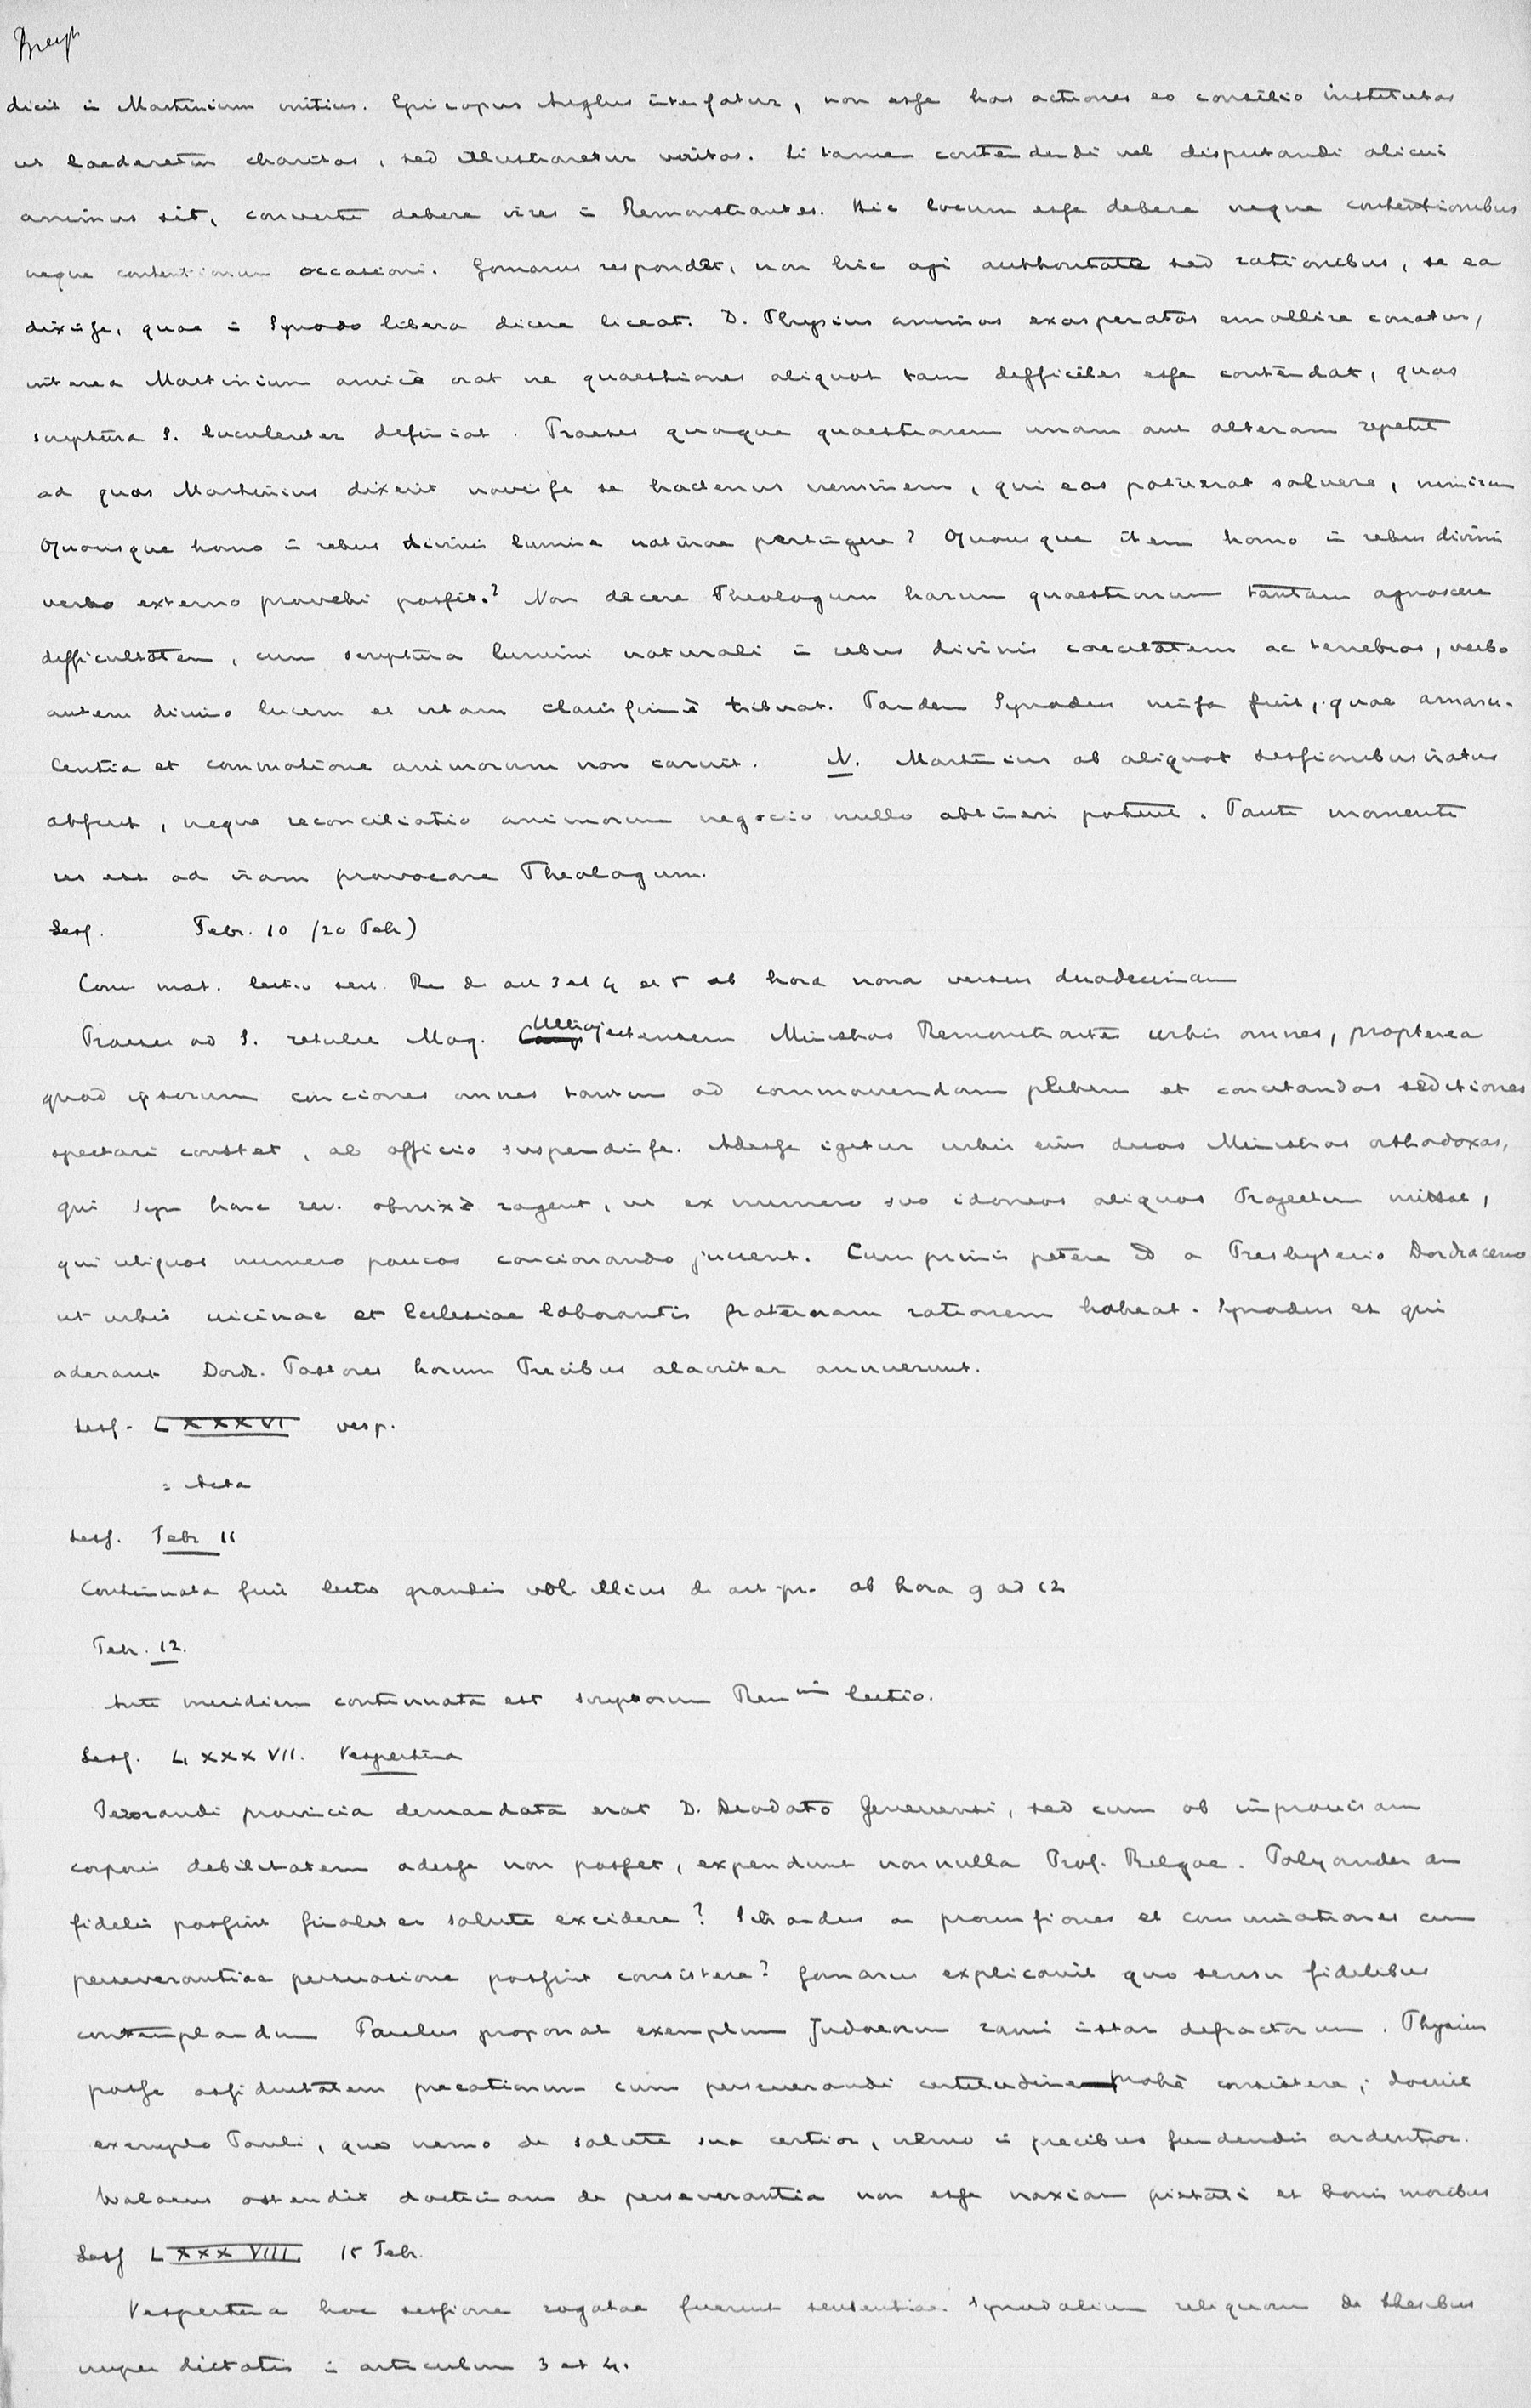 Breyt
dicit in Martinium mitius. Episcopus Anglus interfatur, non esse has actiones eo consilio institutas
ut laederetur charitas, sed illustraretur veritas. Si tamen contendendi vel disputandi alicui
animus sit, converti debere vires in Remonstrantes. Hic locum esse debere neque contentionibus
neque contentionum occasioni. Gomarus respondet, non hic agi authoritate sed rationibus, se ea
dixisse, quae in Synodo libera dicere liceat. D. Thysius animos exasperatos emollire conatur,
interea Martinium amicè orat ne quaestiones aliquot tam difficiles esse contendat, quas
scriptura S. luculenter definiat. Praeses quoque quaestionem unam aut alteram repetit
ad quas Martinius dixerit novisse se hactenus neminem, qui eas potuerat solvere, nimirum
Quousque homo in rebus divinis lumine naturae pertingere? Quousque item homo in rebus divinis
verbo externo provehi possit? Non decere Theologum harum quaestionum tantam agnoscere
difficultatem, cum scriptura lumini naturali in rebus divinis caecitatem ac tenebras, verbo
autem divino lucem et vitam clarissimè tribuat. Tandem Synodus missa fuit, quae amaru-
lentia et commotione animorum non caruit. N. Martinius ab aliquot sessionibus iratus
abfuit, neque reconciliatio animorum negocio nullo obtineri potuit. Tanti momenti
res est ad iram provocare Theologum.
Sess. Febr. 10 (20 Feb)
Conv mat. lectio scri. Re de art 3 et 4 et 5 ab hora nona versus duodecimam
Praeses ad S. retulit Mag. Ultrajectensem Ministros Remonstrantes urbis omnes, propterea
quod ipsorum conciones omnes tantum ad commovendam plebem et concitandas seditiones
spectari constet, ab officio suspendisse. Adesse igitur urbis eius duos Ministros orthodoxos,
qui Syn hanc rev. obnixè rogent, ut ex numero suo idoneos aliquos Trajectum mittat,
qui reliquos numero paucos concionando juvent. Cum primis petere id a Presbyterio Dordraceno
ut urbis vicinae et Ecclesiae laborantis fraternam rationem habeat. Synodus et qui
aderant Dordr. Pastores horum Precibus alacriter annuerunt.
Sess. LXXXVI vesp.
= Acta
Sess. Febr 11
Continuata fuit lectio grandis vol. illius de art pr. ab hora 9 ad 12
Febr. 12.
Ante meridiem continuata est scriptorum Rem um lectio.
Sess. LXXXVII. Vespertina
Perorandi provincia demandata erat D. Deodato Genevensi, sed cum ob improvisam
corporis debilitatem adesse non posset, expendunt nonnulla Prof. Belgae. Polyander an
fideles possint finaliter salute excidere? Sibrandus an promissiones et comminationes cum
perseverantiae persuasione possint consistere? Gomarus explicavit quo sensu fidelibus
contemplandum Paulus proponat exemplum Judaeorum rami instar defractorum. Thysius
posse assiduitatem precationum cum perseverandi certitudine probè consistere, docuit
exemplo Pauli, quo nemo de salute sua certior, nemo in precibus fundendis ardentior.
Walaeus ostendit doctrinam de perseverantia non esse noxiam pietati et bonis moribus
Sess LXXXVIII 15 Feb.
Vespertina hac sessione rogatae fuerunt sententiae Synodalium reliquorum de thesibus
nuper dictatis in articulum 3 et 4.